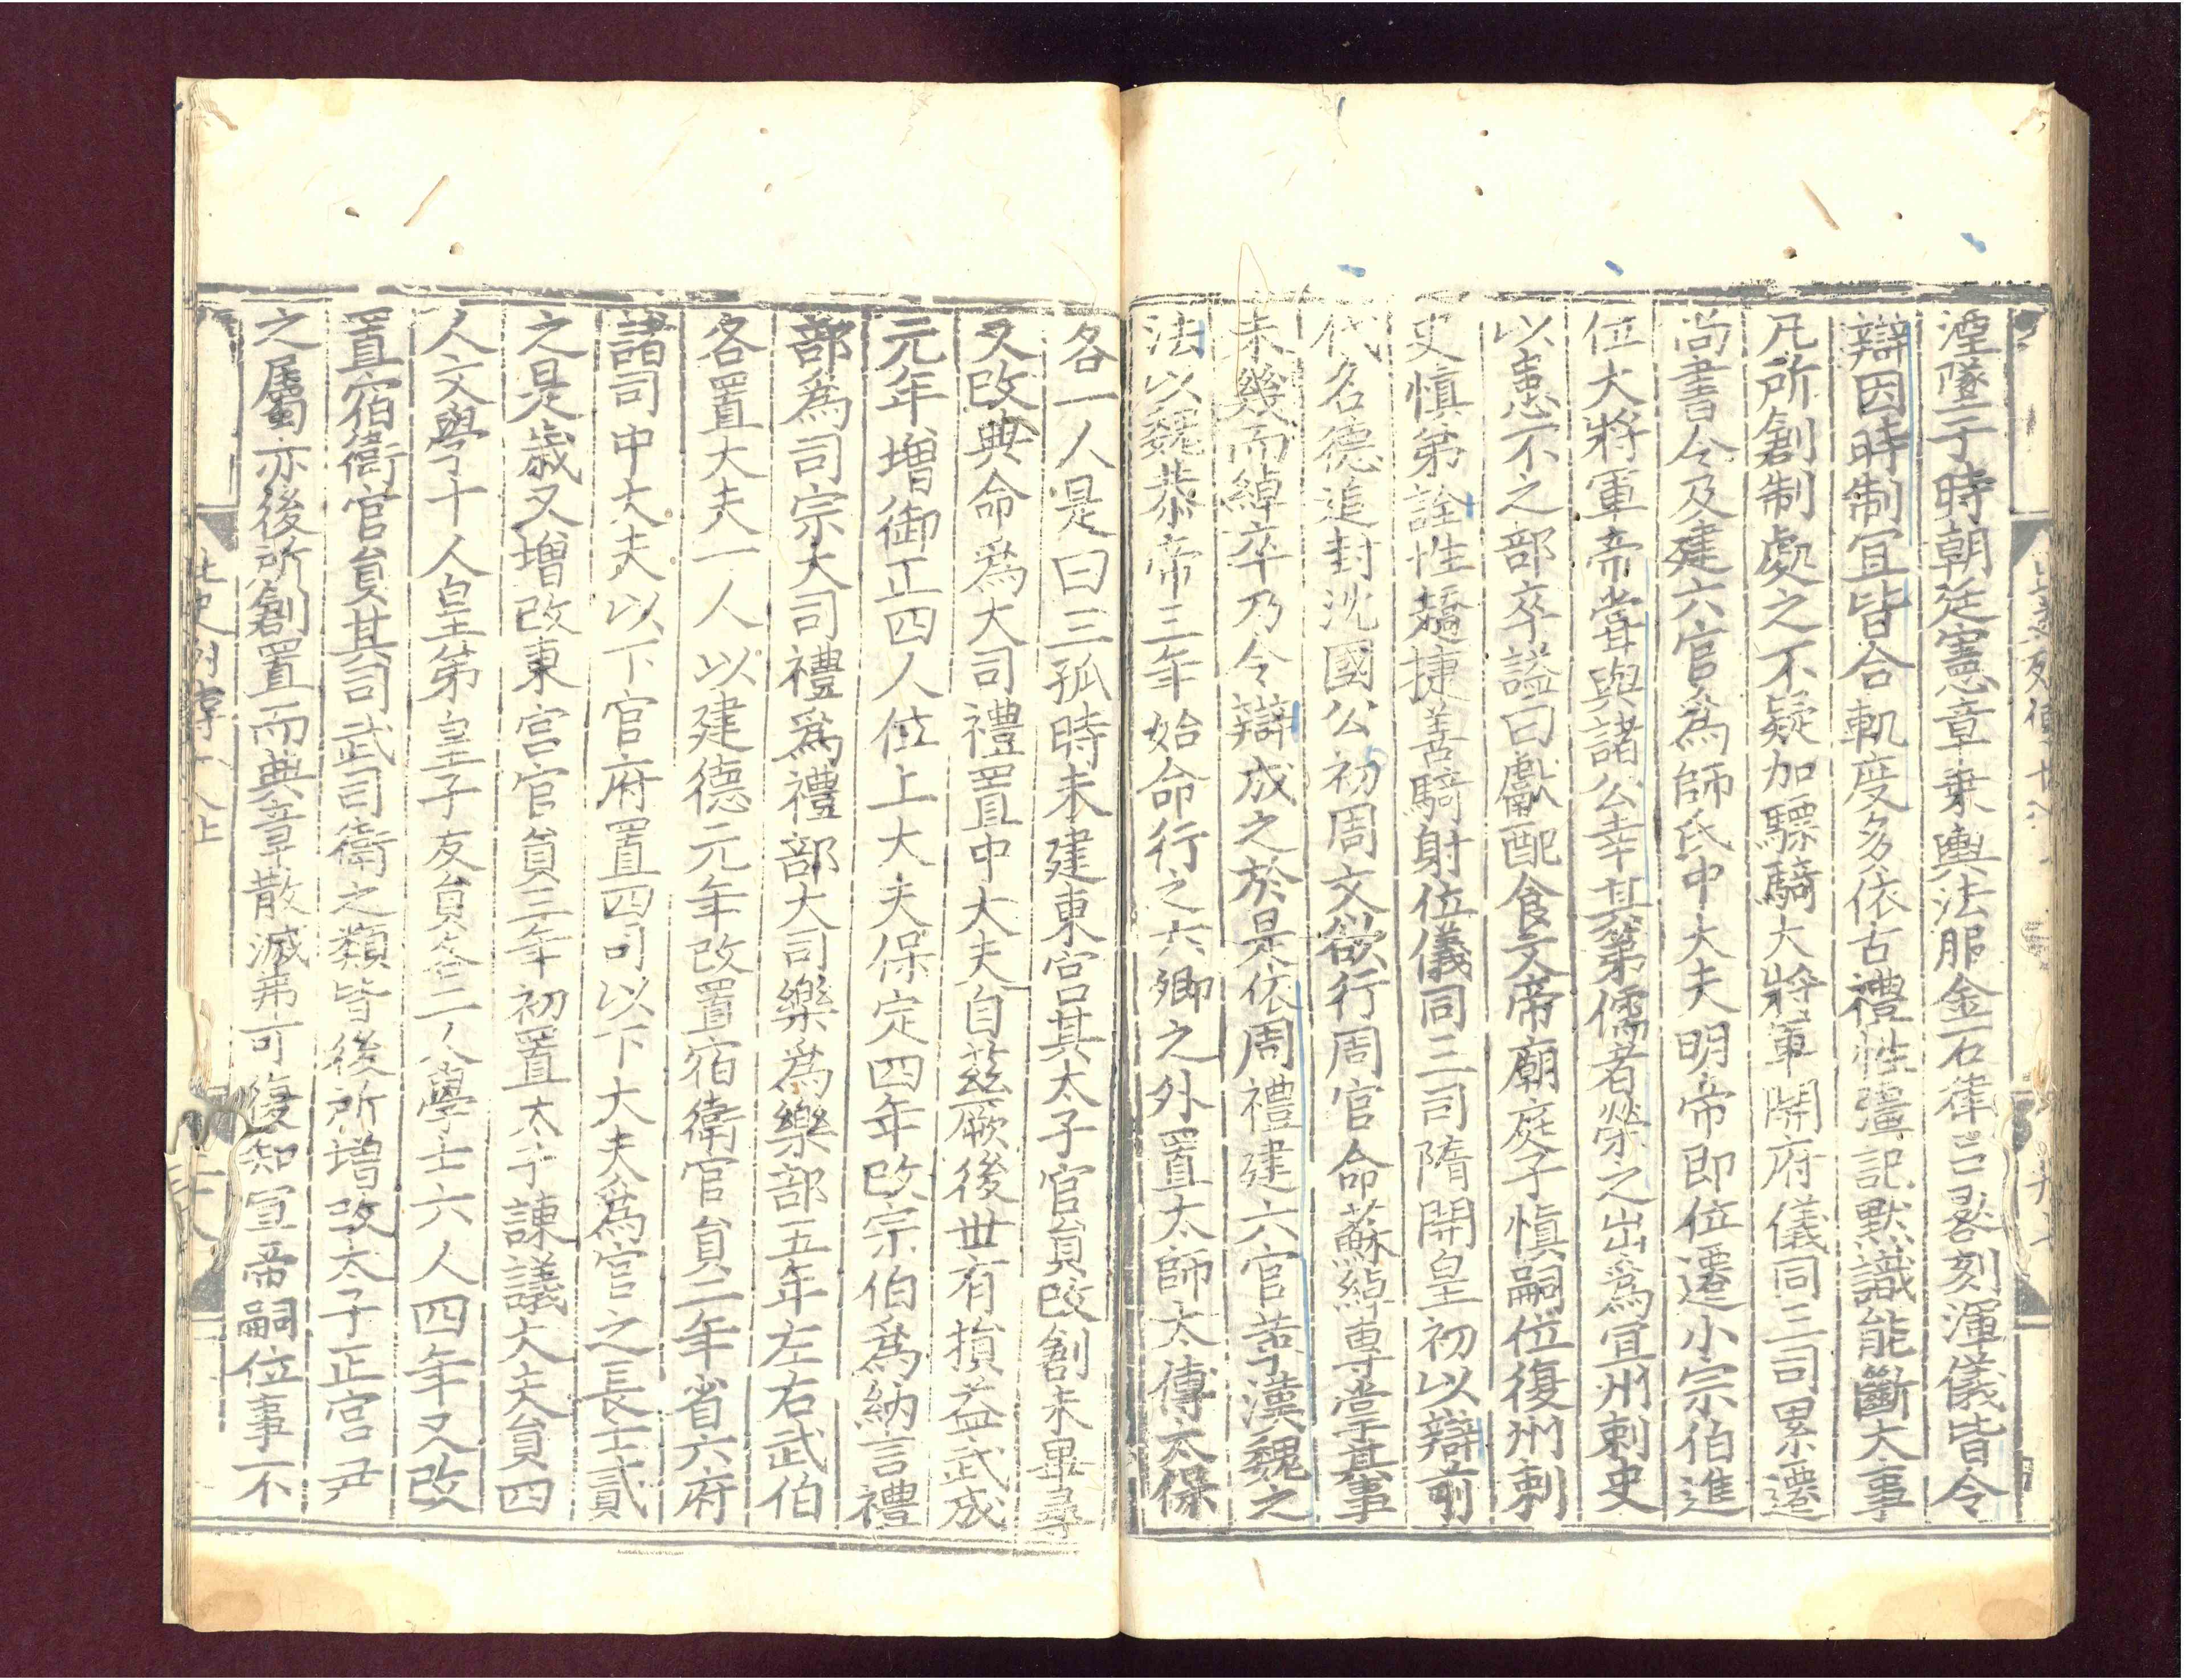 湮墜于時朝廷憲章乗輿法服金石律呂晷刻渾儀皆令
辯因時制宜皆合軌度多依古禮性彊記黙識能斷大事
凡所創制處之不疑加驃騎大將軍開府儀同三司累遷
尚書令及建六官爲師氏中大夫明帝即位遷小宗伯進
位大將軍帝嘗與諸公幸其第儒者榮之出爲宜州刺史
以患不之部卒謚曰獻配食文帝廟庭子愼嗣位復州刺
史愼弟詮性趫捷善騎射位儀同三司隋開皇初以辯前
代名德追封沈國公初周文欲行周官命蘇綽專掌其事
未幾而綽卒乃令辯成之於是依周禮建六官革漢魏之
法以魏恭帝三年始命行之六卿之外置太師太傅太保
各一人是曰三孤時未建東宮其太子官員改創未畢尋
又改典命爲大司禮置中大夫自茲厥後世有損益武成
元年增御正四人位上大夫保定四年改宗伯爲納言禮
部爲司宗大司禮爲禮部大司樂爲樂部五年左右武伯
各置大夫一人以建德元年改置宿衛官員二年省六府
諸司中大夫以下官府置四司以下大夫爲官之長士貳
之是歲又增改東宮官員三年初置太子諫議大夫員四
人文學十人皇弟皇子友員各二人學士六人四年又改
置宿衛官員其司武司衛之類皆後所增改太子正宮尹
之屬亦後所創置而典章散滅弗可復知宣帝嗣位事不
北史列傳十八上